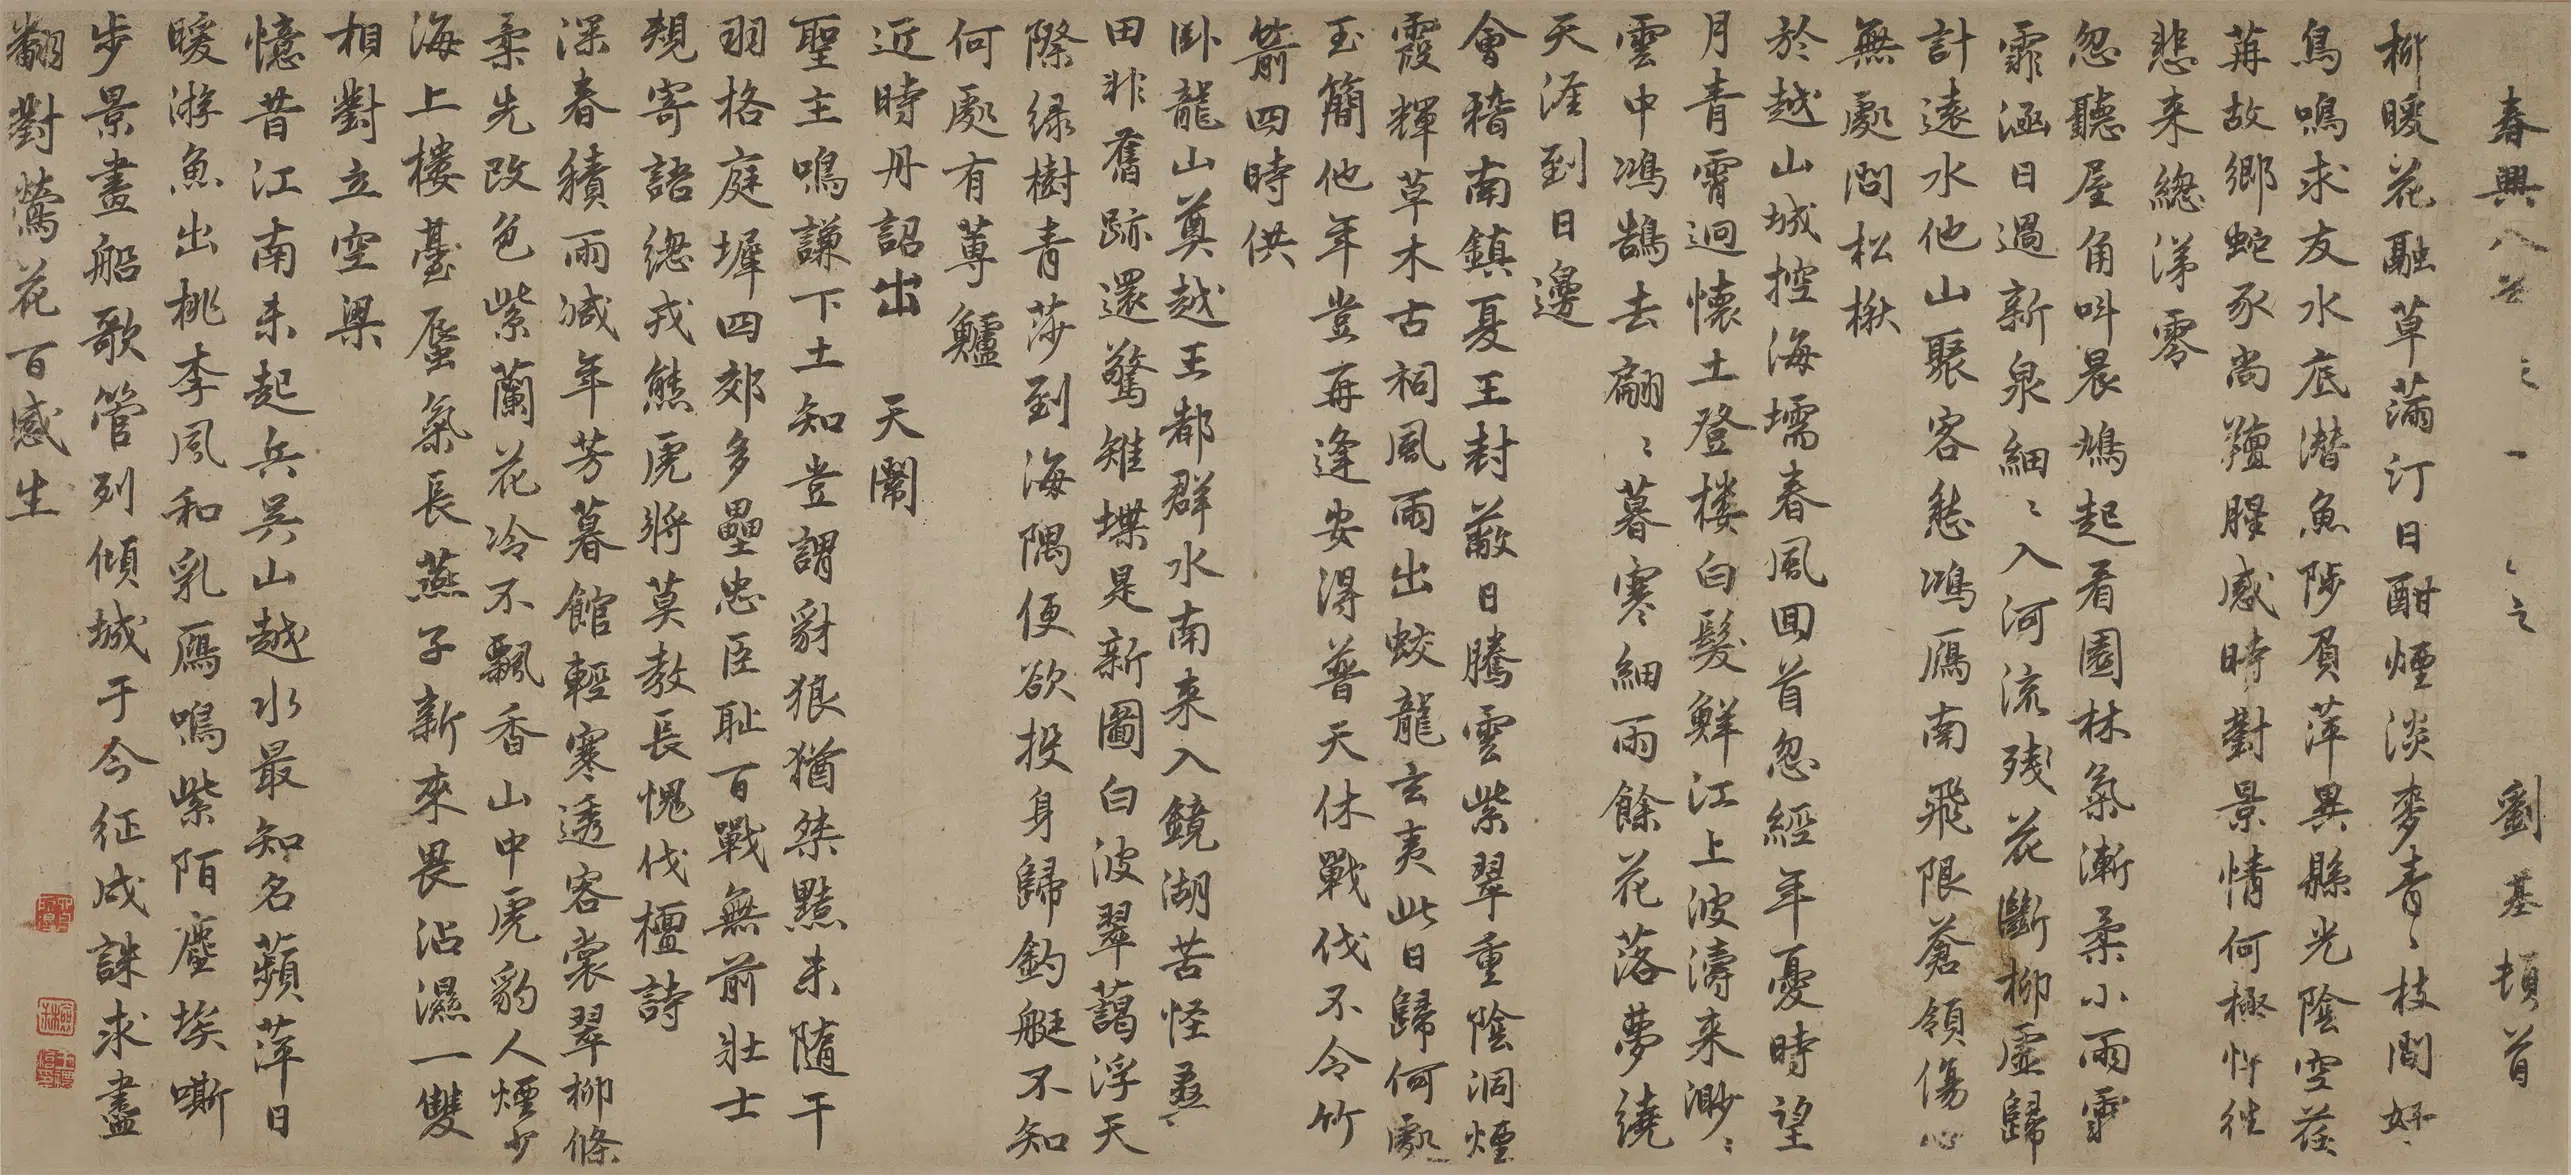 春興八首 劉基頓首
柳暖花融草滿汀日酣煙淡麥青〻枝間好
鳥鳴求友水底潛魚陟負萍異縣光陰空荏
苒故鄉蛇豕尚羶腥感時對景情何極忤往
悲来總涕零
忽聽屋角叫晨鳩起看園林氣漸柔小雨霏
霏涵日過新泉細〻入河流殘花斷柳虛歸
計遠水他山聚客愁鴻鴈南飛限蒼領傷心
無處問松楸
於越山城控海壖春風回首忽經年憂時望
月青霄迥懷土登樓白髮鮮江上波濤来渺〻
雲中鴻鵠去翩〻暮寒細雨餘花落夢繞
天涯到日邊
會稽南鎮夏王封蔽日騰雲紫翠重陰洞煙
霞輝草木古祠風雨出蛟龍玄夷此日歸何處
玉簡他年豈再逢安得普天休戰伐不令竹
箭四時供
卧龍山奠越王都群水南来入鏡湖苦怪桑
田非舊跡還驚雉堞是新圖白波翠藹浮天
際綠樹青莎到海隅便欲投身歸釣艇不知
何處有蓴鱸
近時丹詔出天閽
聖主鳴謙下土知豈謂豺狼猶桀黠未隨干
羽格庭墀四郊多壘忠臣恥百戰無前壯士
覩寄語總戎熊虎將莫教長愧伐檀詩
深春積雨減年芳暮館輕寒透客裳翠柳條
柔先改色紫蘭花冷不飄香山中虎豹人煙少
海上樓臺蜃氣長燕子新來畏沾濕一雙
相對立空梁
憶昔江南未起兵吳山越水最知名蘋萍日
暖游魚出桃李風和乳鴈鳴紫陌塵埃嘶
步景畫船歌管列傾城于今征戍誅求盡
翻對鶯花百感生